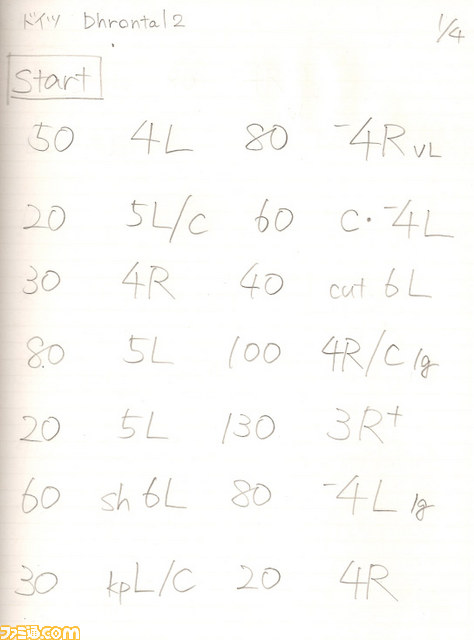 ドイツ Dhrontal 2 1/4
Start
50 4L 80 -4R VL
20 5L/C 60 C・-4L
30 4R 40 cut 6L
80 5L 100 4R/C lg
20 5L 130 3R+
60 sh 6L 80 -4L lg
30 kpL/C 20 4R
ファミ通.com